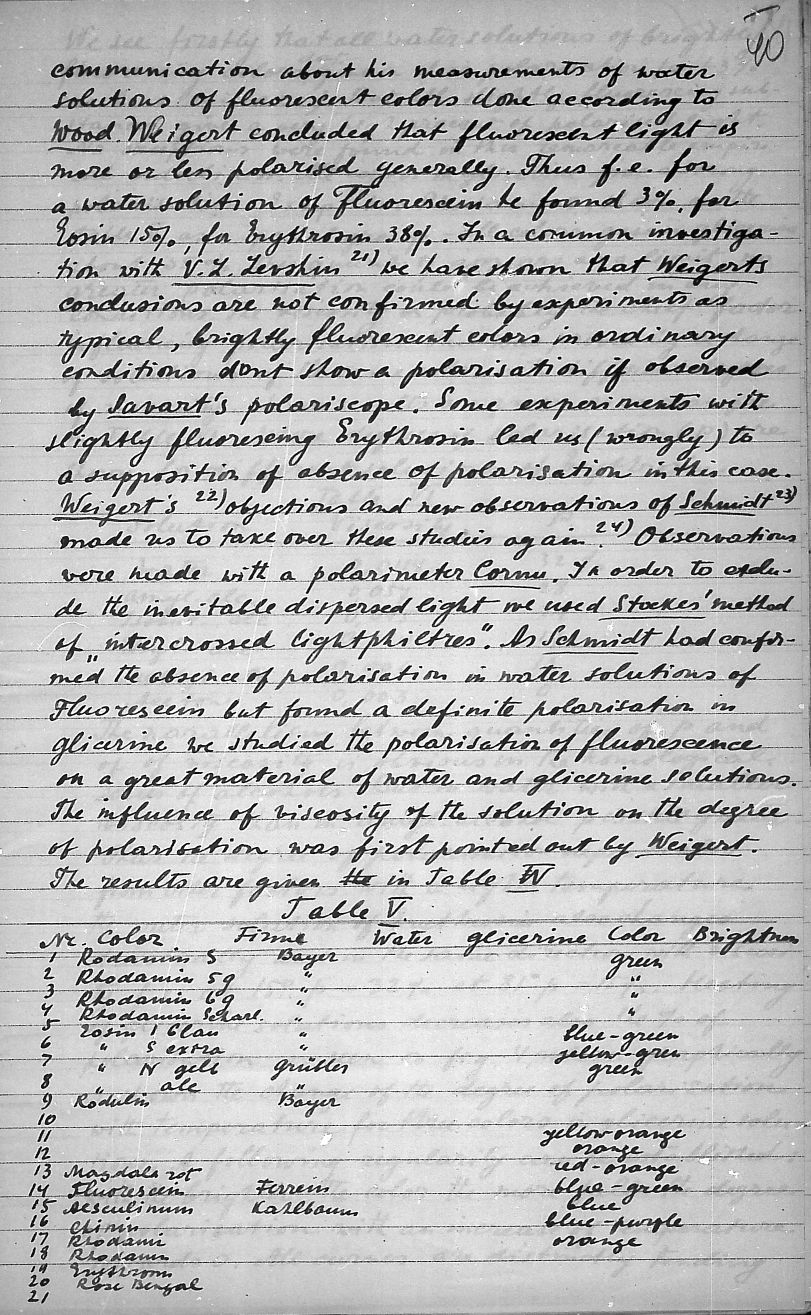 40
communication about his measurements of water
solutions of fluorescent colors done according to
Wood. Weigert concluded that fluorescent light is
more or less polarised generally. Thus f.e. for
a water solution of Fluorescein he found 3%, for
Eosin 15%, for Erythrosin 38%. In a common investiga-
tion with V. L. Levshin 21) we have shown that Weigerts
conclusions are not confirmed by experiments as
typical, brightly fluorescent colors in ordinary
conditions dont show a polarisation if observed
by Savart's polariscope. Some experiments with
slightly fluoresceing Erythrosin led us (wrongly) to
a supposition of absence of polarisation in this case.
Weigert's 22) objections and new observations of Schmidt 23)
made us to take over these studies again. 24) Observations
were made with a polarimeter Cornu. In order to exclu-
de the inevitable dispersed light we used Stockes' method
of „intercrossed lightphiltres". As Schmidt had confir-
med the absence of polarisation in water solutions of
Fluorescein but found a definite polarisation in
glicerine we studied the polarisation of fluorescence
on a great material of water and glicerine solutions.
The influence of viscosity of the solution on the degree
of polarisation was first pointed out by Weigert.
The results are given the in Table IV.
Table V.
Nr. Color Firme Water glicerine Color Brightness
1 Rodamin S Bayer green
2 Rhodamin 5g " "
3 Rhodamin 6g " "
4 Rhodamin Scharl. " "
5 Eosin 1 blau " blue-green
6 " S extra " yellow-green
7 " N gelb Grübler green
8 " alc "
9 Rodulin Bayer
10
11 yellow orange
12 orange
13 Magdala rot red-orange
14 Fluorescein Ferrein blue-green
15 Aesculinum Kahlbaum blue
16 Chinin blue-purple
17 Rhodami orange
18 Rhodamin
19 Erythrosin
20 Rose Bengal
21